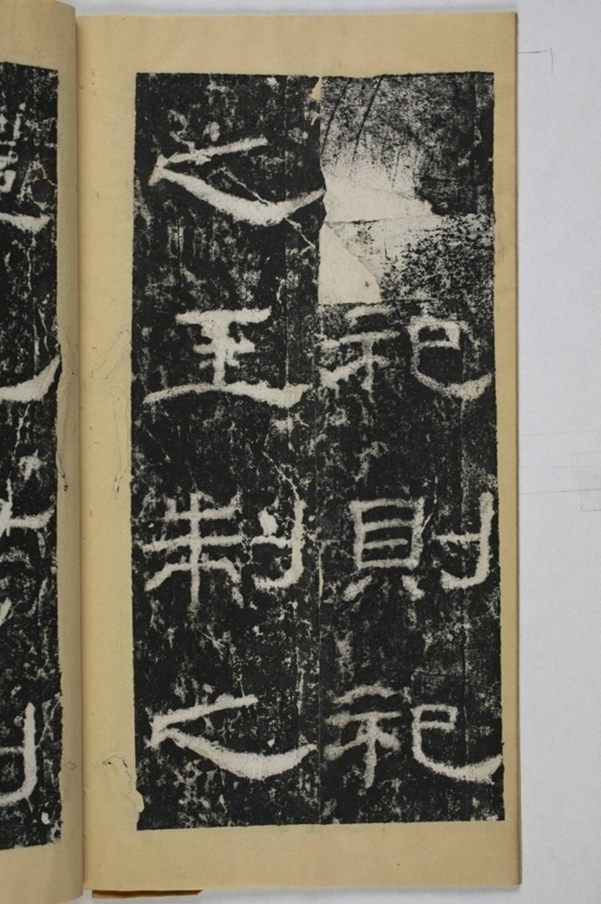 祀則祀
之王制之